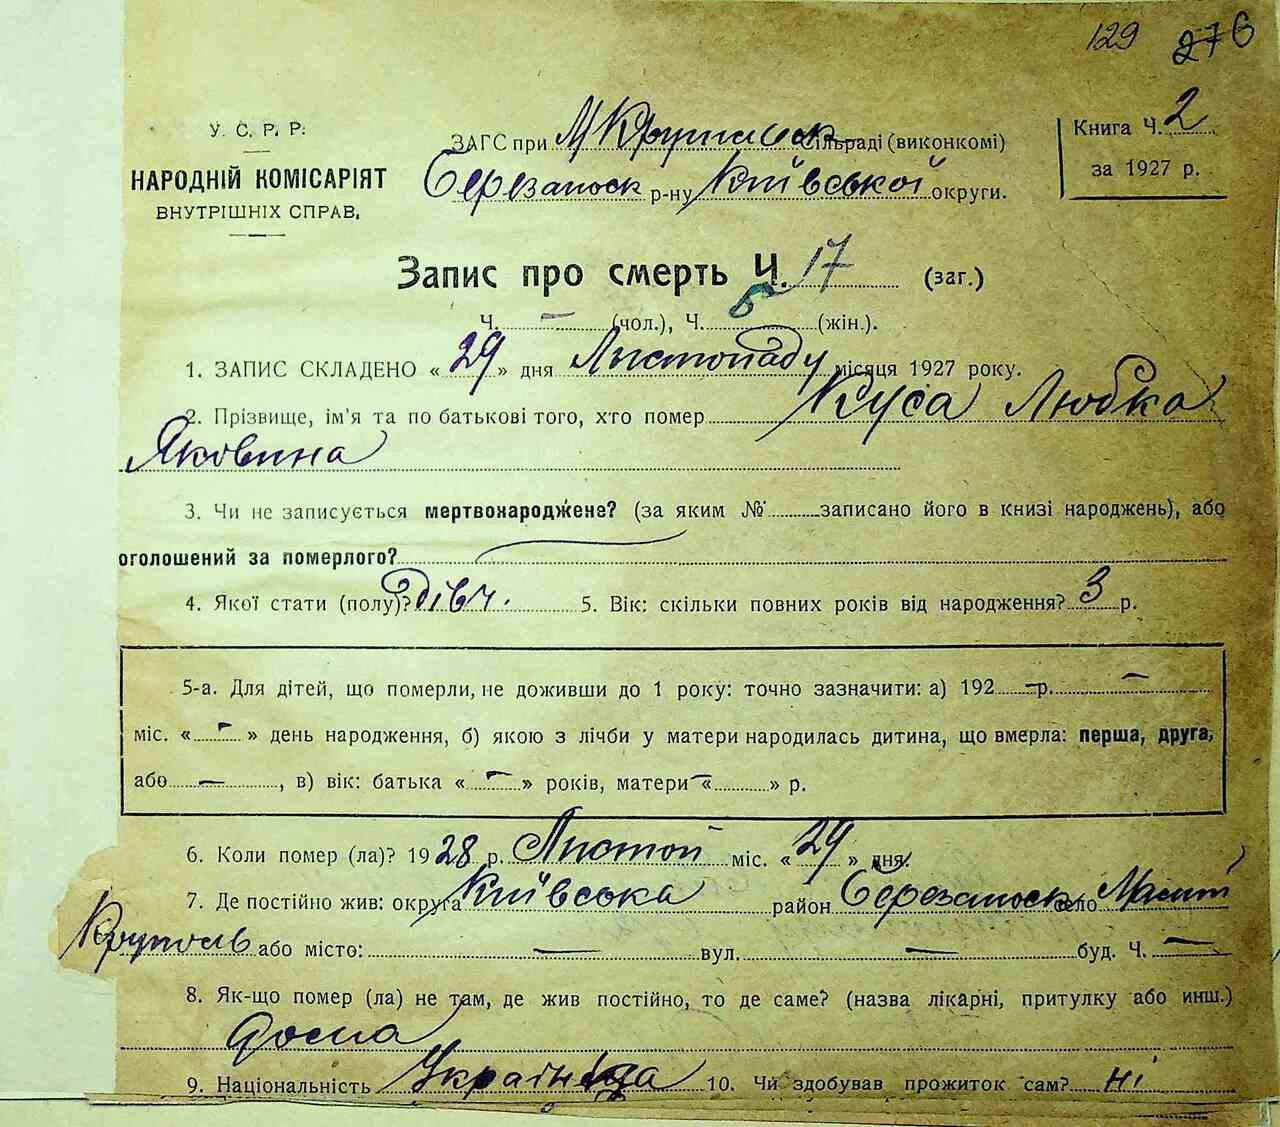 129 276
У. С. Р. Р.
НАРОДНІЙ КОМІСАРІЯТ
ВНУТРІШНІХ СПРАВ.
ЗАГС при М Крупольск Сільраді (виконкомі)
Березанск р-ну Київської округи.
Книга Ч. 2
за 1927 р.
Запис про смерть Ч. 17 (заг.)
Ч. — (чол.), Ч. 6 (жін.).
1. ЗАПИС СКЛАДЕНО « 29 » дня Листопаду місяця 1927 року.
2. Прізвище, ім'я та по батькові того, хто помер Куса Любка
Яковина
3. Чи не записується мертвонароджене? (за яким № записано його в книзі народжень), або
оголошений за померлого?
4. Якої стати (полу)? дівч. 5. Вік: скільки повних років від народження? 3 р.
5-а. Для дітей, що померли, не доживши до 1 року: точно зазначити: а) 192 — р. —
міс. « — » день народження, б) якою з лічби у матери народилась дитина, що вмерла: перша, друга,
або — , в) вік: батька « — » років, матери — « » р.
6. Коли помер (ла)? 1928 р. Листоп міс. « 29 » дня.
7. Де постійно жив: округа Київська район Березанск село Малий
Круполь або місто: — вул. — буд. Ч. —
8. Як-що помер (ла) не там, де жив постійно, то де саме? (назва лікарні, притулку або инш.)
дома
9. Національність Українка 10. Чи здобував прожиток сам? ні